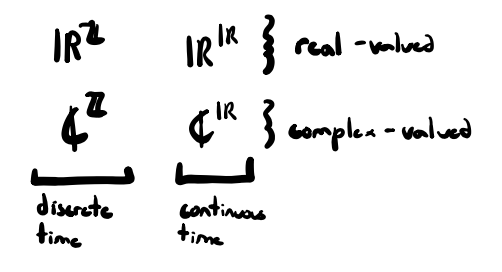 ℝ^ℤ ℝ^ℝ } real-valued
ℂ^ℤ ℂ^ℝ } complex-valued
discrete continuous
time time